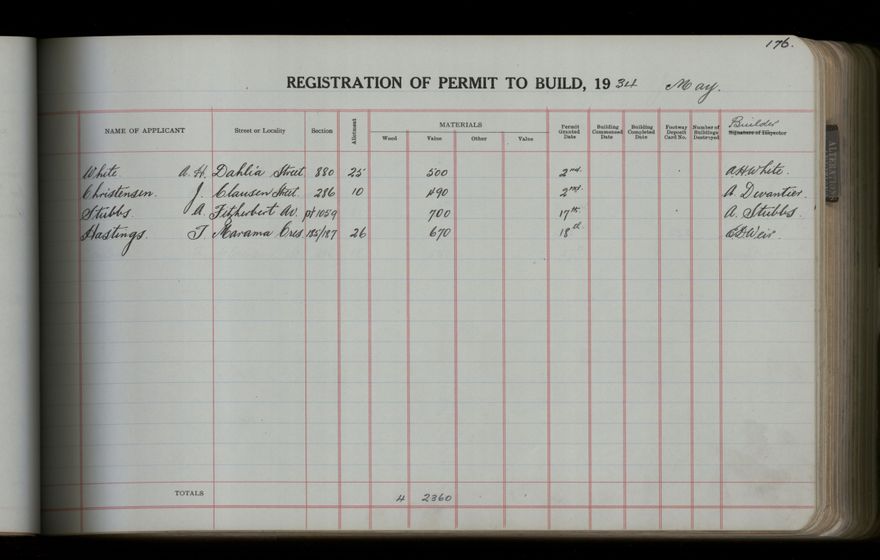 176.
REGISTRATION OF PERMIT TO BUILD, 1934 May.
NAME OF APPLICANT Street or Locality Section Allotment MATERIALS Wood Value Other Value Permit Granted Date Building Commenced Date Building Completed Date Footway Deposit Card No. Number of Buildings Destroyed Builder Signature of Inspector
White. A. H. Dahlia Street 880 25 500 2nd. A H White.
Christensen. J. Clausen Street. 286 10 490 2nd. A. Devantier.
Stubbs. A. Fitzherbert Av. pt 1059 700 17th A. Stubbs.
Hastings. T. Marama Cres. 185/187 26 670 18th Weir.
TOTALS 4 2360
ALTERATION